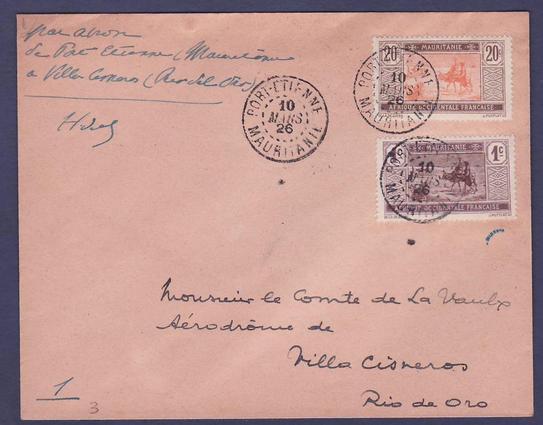 par avion
de Port Etienne (Mauritanie)
a Villa Cisneros (Rio del Oro)
20c MAURITANIE 20c
AFRIQUE OCCIDENTALE FRANÇAISE
PORT-ETIENNE
10
MARS
26
MAURITANIE
PORT-ETIENNE
10
MARS
26
MAURITANIE
MAURITANIE 1c
AFRIQUE OCCIDENTALE FRANÇAISE
10
MARS
26
Monsieur le Comte de La Vaulx
Aérodrôme de
Villa Cisneros
Rio de Oro
1
3